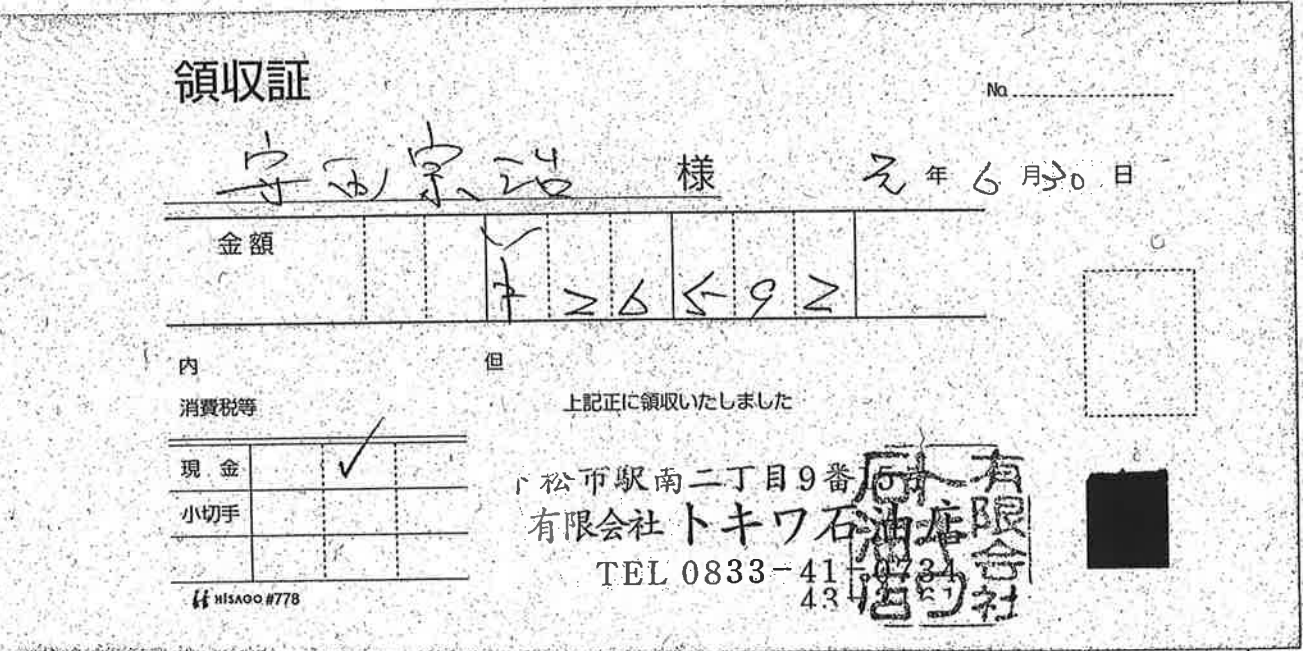 領収証
No.
守西宗浩 様 元年6月30日
金額 ¥26592
内
但
消費税等
上記正に領収いたしました
現金 ✓
小切手
松市駅南二丁目9番15号
有限会社トキワ石油店
TEL 0833-41-0734
43
有限会社トキワ石油店
HISAGO #778